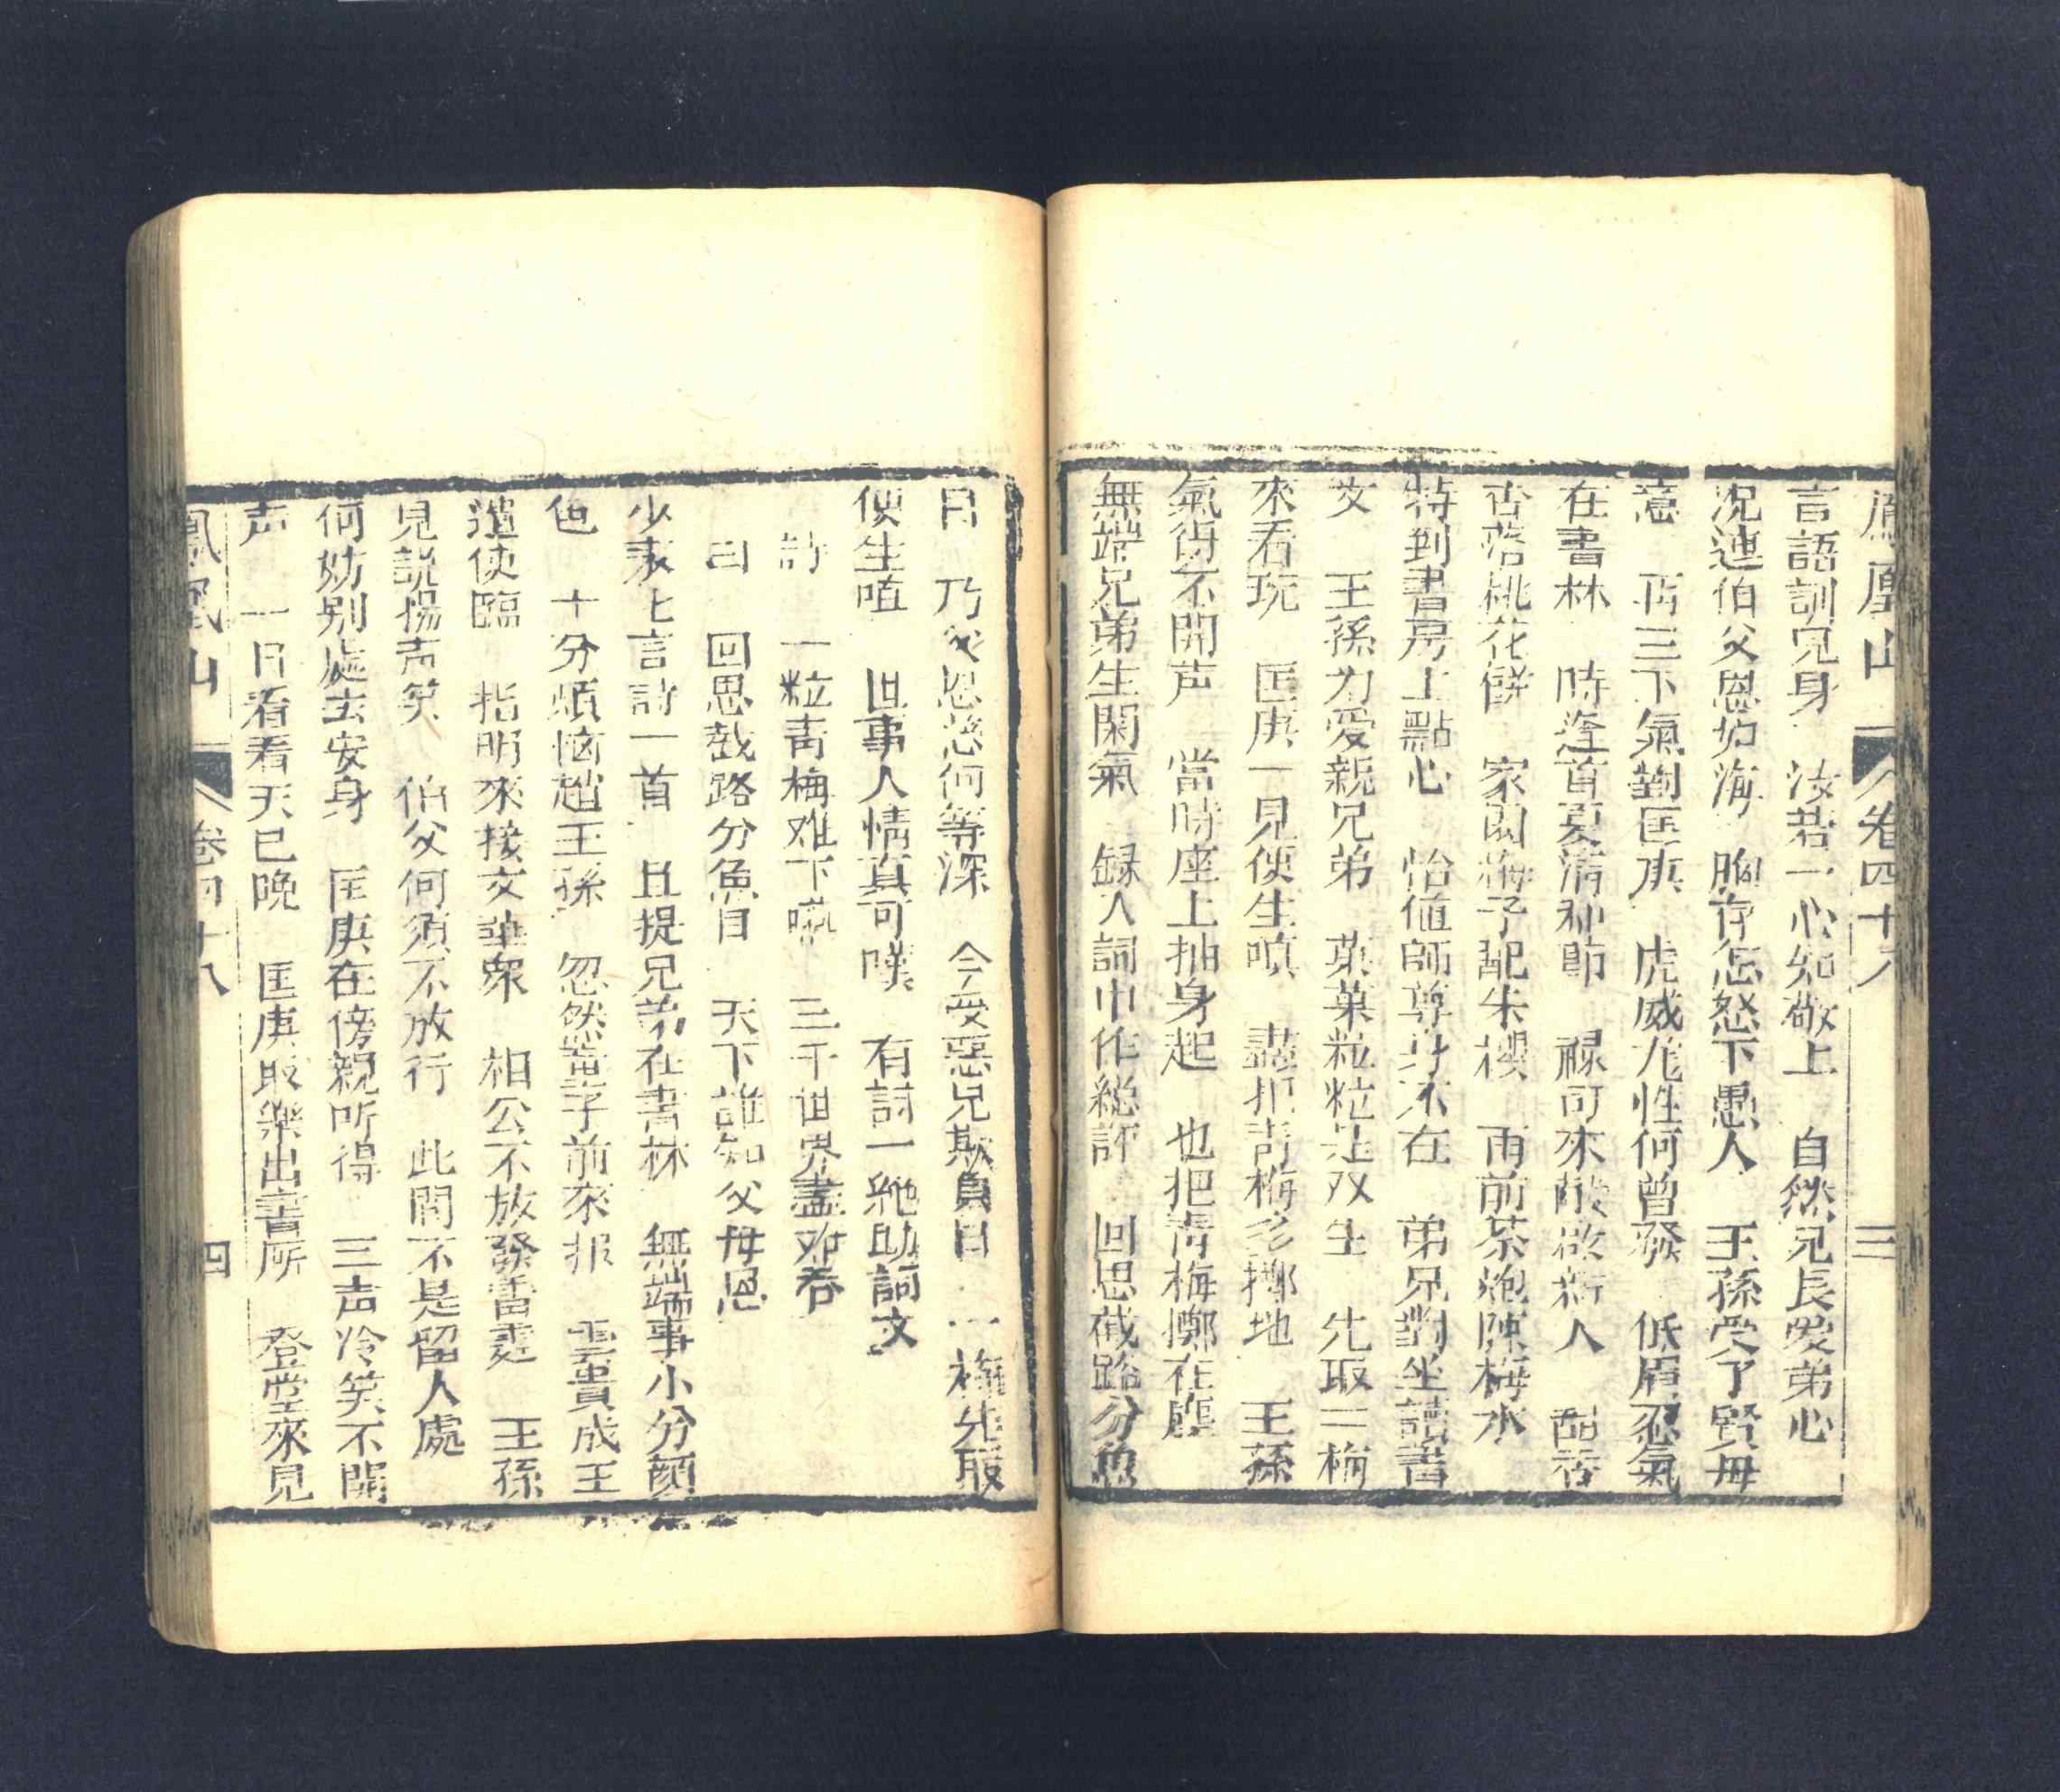 鳳凰山 卷四十八 三
言語訓兄身 汝若一心如敬上 自然兄長愛弟心
况連伯父恩如海 胸存怎怒下愚人 王孫受了賢母
意 再三下氣對匡庚 虎威尨性何曾發 低眉忍氣
在書林 時逢首夏清和節 祿可來 人
杏酪桃花餅 家園梅子配朱櫻 雨前茶泡陳梅水
特到書房上點心 怡值師尊身不在 弟兄對坐讀書
文 王孫力愛親兄弟 菓菓粒粒是双生 先取三梅
來看玩 匡庚一見便生嗔 盡把青梅多擲地 王孫
氣得不開声 當時座上抽身起 也把青梅擲在塵
無端兄弟生閑氣 録入詞中作総評 回思岐路分魚
目 乃父恩慈何等深 今受惡兄欺負目 一梅先取
便生嗔 世事人情真可嘆 有詩一絶助詞文
詩 一粒青梅难下嚥 三千世界盡难吞
曰 回思岐路分魚目 天下誰知父母恩
少表上言詩一首 且提兄弟在書林 無端事小分顏
色 十分煩惱趙王孫 忽然當子前來报 雲貴成王
遣使臨 指明來接文華衆 相公不放發雷霆 王孫
見説揚声笑 伯父何須不放行 此間不是留人處
何妨别處去安身 匡庚在傍親所得 三声冷笑不開
声 一日看看天已晚 匡庚取樂出書所 登堂來見
鳳凰山 卷四十八 四